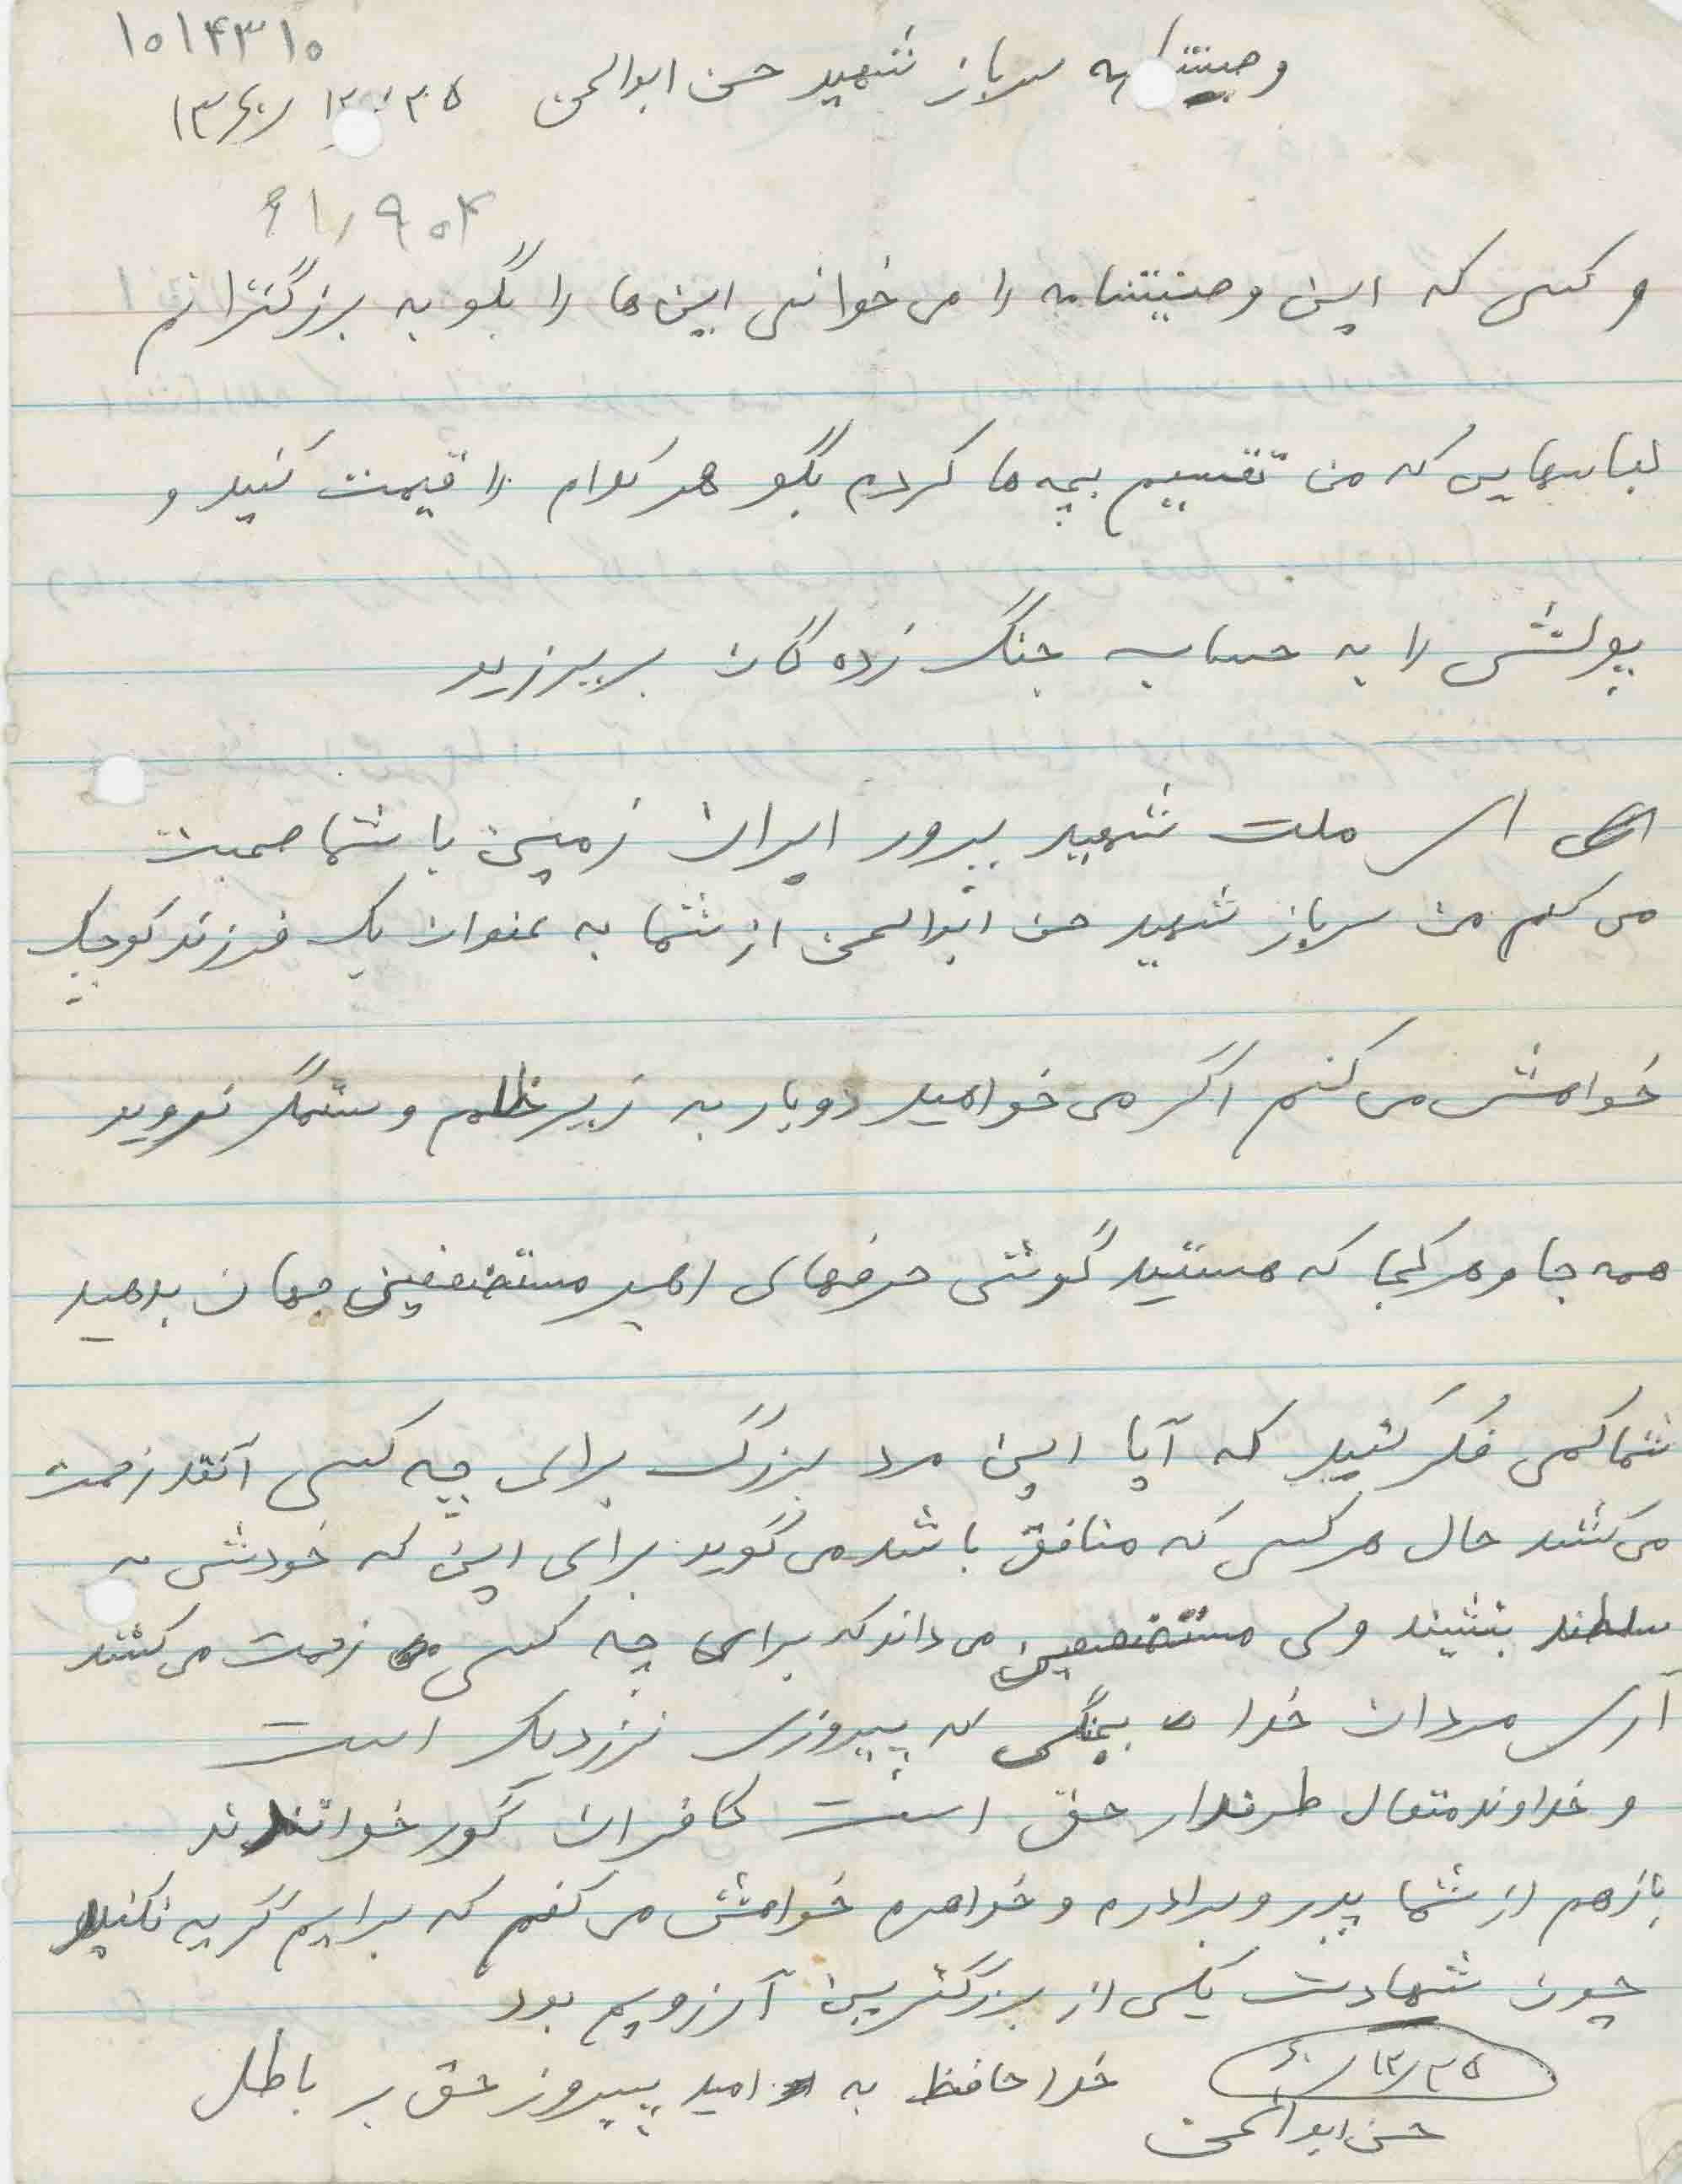 ۱۰۱۴۳۱۰
وصیتنامه سرباز شهید حسن ابوالحسن ۱۳۶۰/۱۲/۲۵
۶۱/۹۰۴
و کسی که این وصیتنامه را می خوانی این ها را بگو به بزرگترانم
لباسهایی که من تقسیم بچه ها کردم بگو هر کدام را قیمت کنید و
پولش را به حساب جنگ زده گان بریزید
ای ملت شهید پرور ایران زمین با شما صحبت
می کنم من سرباز شهید حسن ابوالحسن از شما به عنوان یک فرزند کوچک
خواهش می کنم اگر می خواهید دوباره به زیر ظلم و ستمگر نروید
همه جا و هر کجا که هستید گوش حرفهای امید مستضعفین جهان بدهید
شما کمی فکر کنید که آیا این مرد بزرگ برای چه کسی آنقدر زحمت
می کشد حال هر کسی که منافق باشد می گوید برای این که خودش به
سلطنت بنشیند ولی مستضعفین می داند که برای چه کسی زحمت می کشد
آری مردان خدا بجنگی که پیروزی نزدیک است
و خداوند متعال طرفدار حق است کافران کور خواندند
بازهم از شما پدر و برادرم و خواهرم خواهش می کنم که برایم گریه نکنید
چون شهادت یکی از بزرگترین آرزویم بود
خدا حافظ به امید پیروز حق بر باطل
۶۰/۱۲/۲۵
حسن ابوالحسن